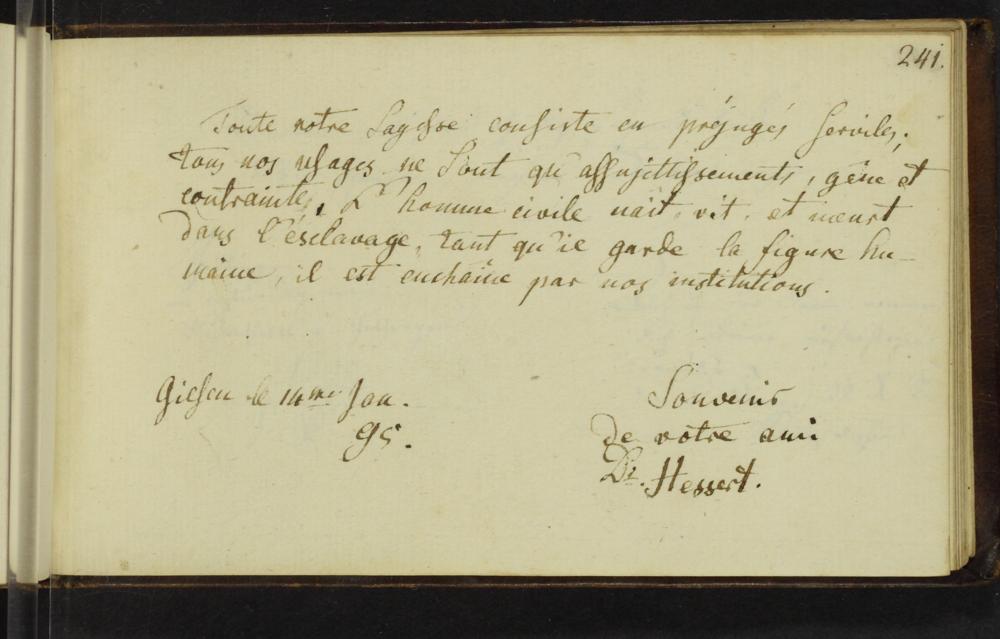 241.
Toute notre Sagesse consiste en préjugés serviles,
tous nos usages ne Sont qu'assujettissements, gêne et
contrainte, L'homme civile nait, vit, et meurt
dans l'ésclavage, tant qu'il garde la figure hu-
maine, il est enchaîne par nos institutions.
Giesen le 14me Jan.
95.
Souvenir
de votre ami
Dr. Hessert.